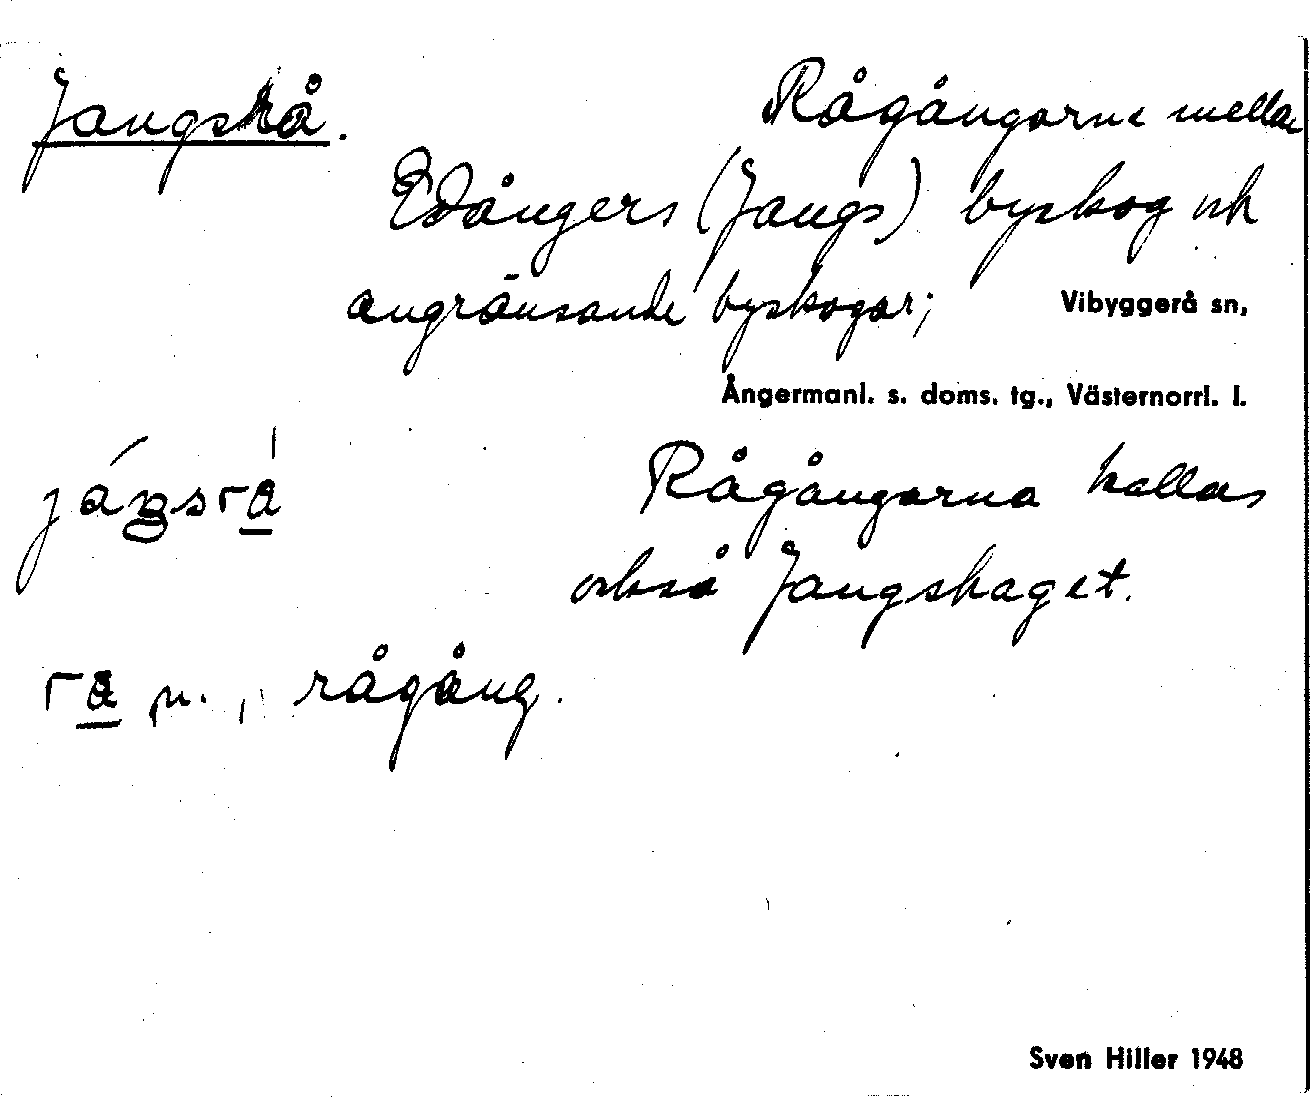 Jangsrå. Rågångarna mellan
Edångers (Jangs) byskog och
angränsande byskogar; Vibyggerå sn,
Ångermanl. s. doms. tg., Västernorrl. l.
Rågångarna kallas
också Jangshaget.
rå n., rågång.
Sven Hiller 1948